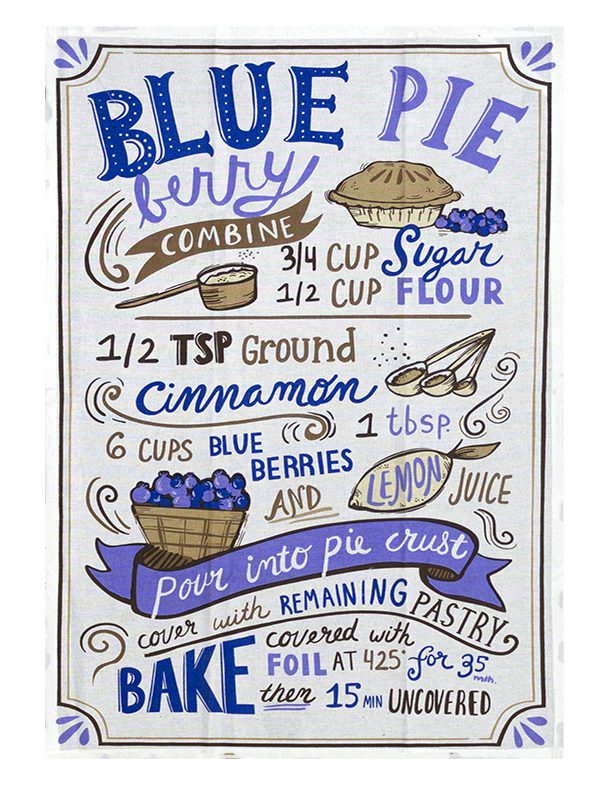 BLUE PIE
berry
COMBINE
3/4 CUP Sugar
1/2 CUP FLOUR
1/2 TSP Ground
Cinnamon
1 tbsp.
6 CUPS BLUE
BERRIES
AND
LEMON JUICE
Pour into pie crust
cover with REMAINING PASTRY
BAKE covered with
FOIL AT 425° for 35
min.
then 15 MIN UNCOVERED